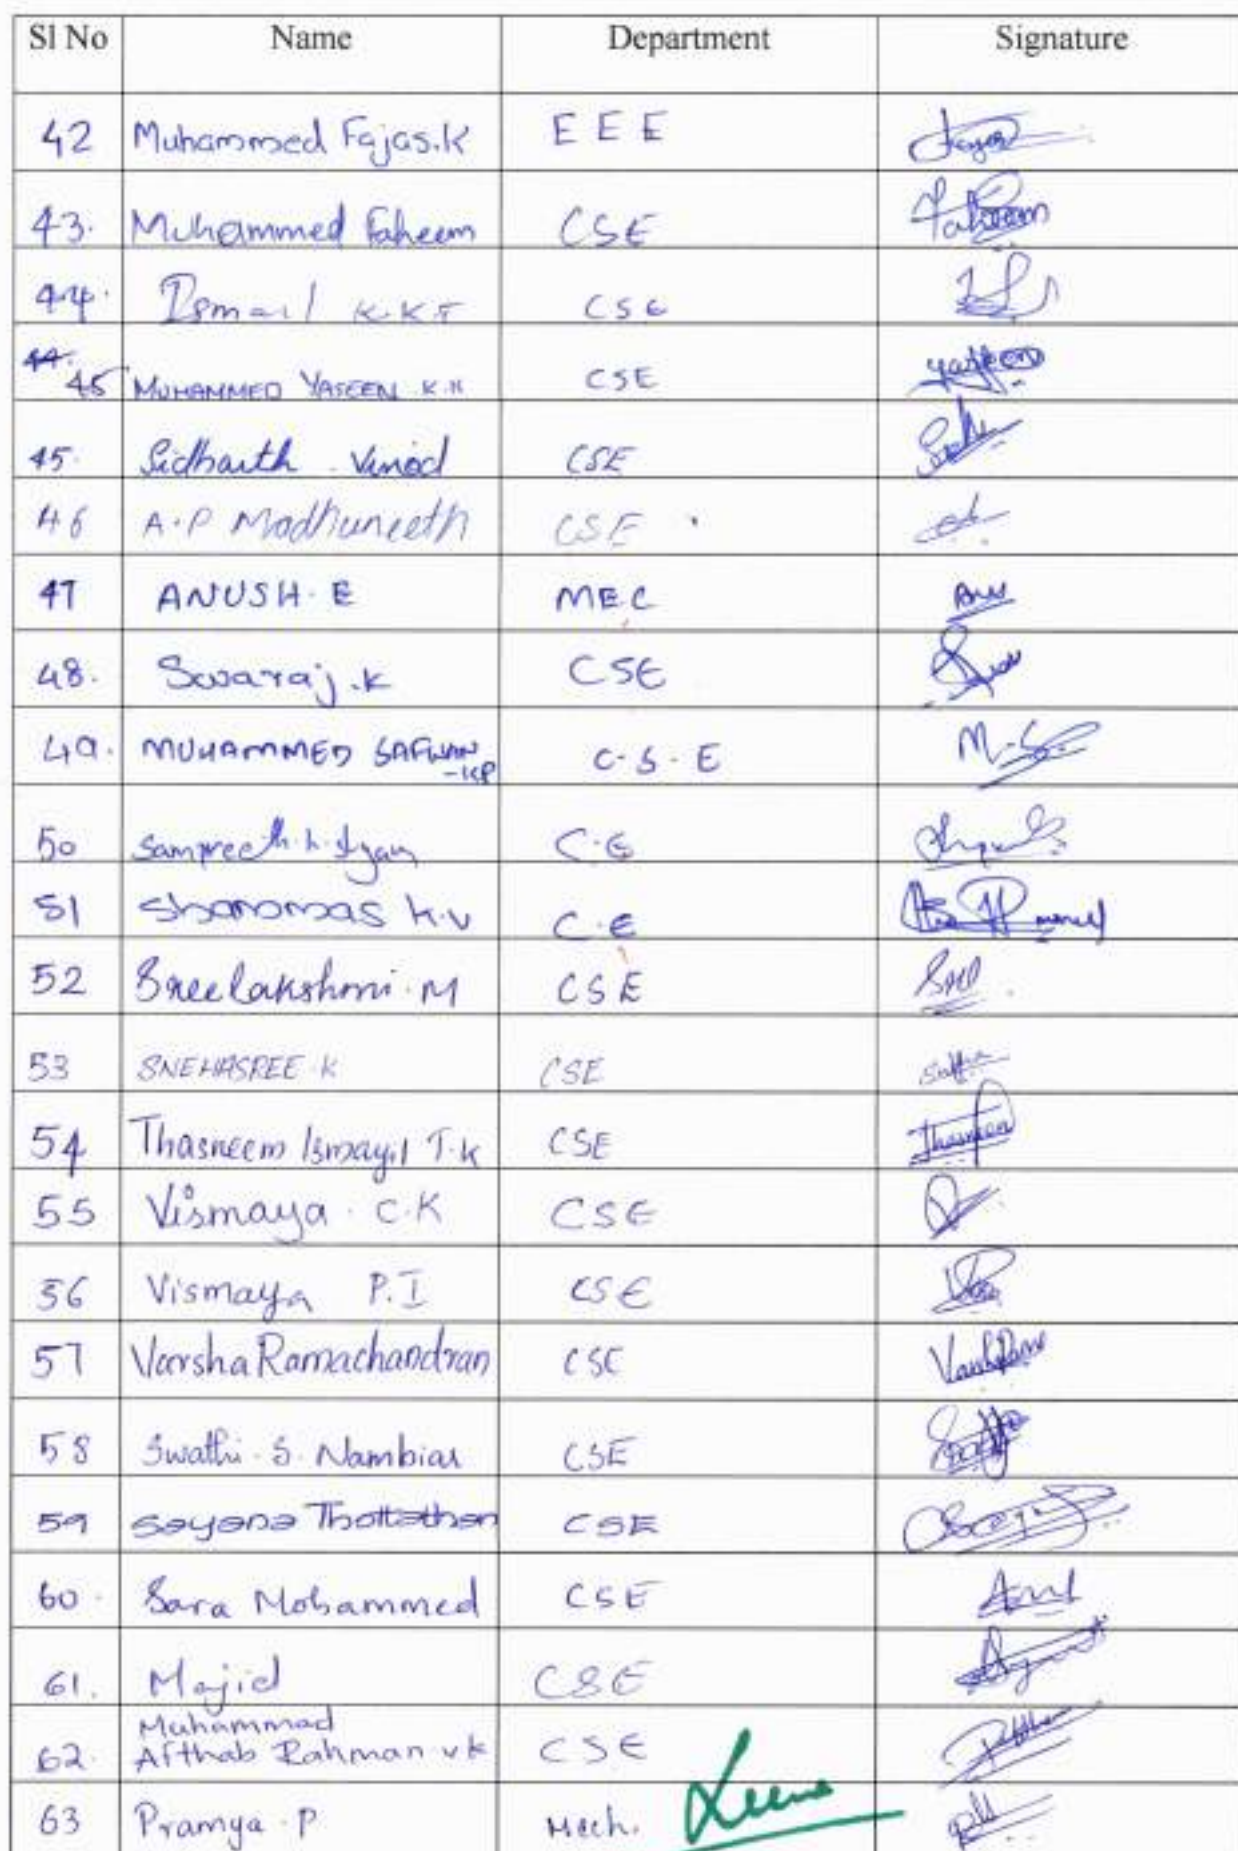 Sl No Name Department Signature
42 Muhammed Fajas.K E E E
43. Muhammed Faheem CSE Faheem
44. Ismail K.K.T CSE
44.
45 MUHAMMED YASEEN K.H CSE yaseen
45. Sidharth Vinod CSE
46 A.P Madhuneeth CSE
47 ANUSH. E MEC Anu
48. Swaraj.K CSE
49. MUHAMMED SAFWAN C.S.E M.S.
-KP
50 Sampreeth. C.E
51 Shammas K.V C.E
52 Sreelakshmi.M CSE Sree
53 SNEHASREE.K CSE
54 Thasneem Ismayil T.K CSE Thasneem
55 Vismaya. C.K CSE
56 Vismaya P.I CSE
57 Varsha Ramachandran CSE
58 Swathi. S. Nambiar CSE
59 Sayana Thottathen CSE
60. Sara Mohammed CSE
61. Majid CSE
Muhammad
62. Afthab Rahman v k CSE
63 Pramya.P Mech. Leena